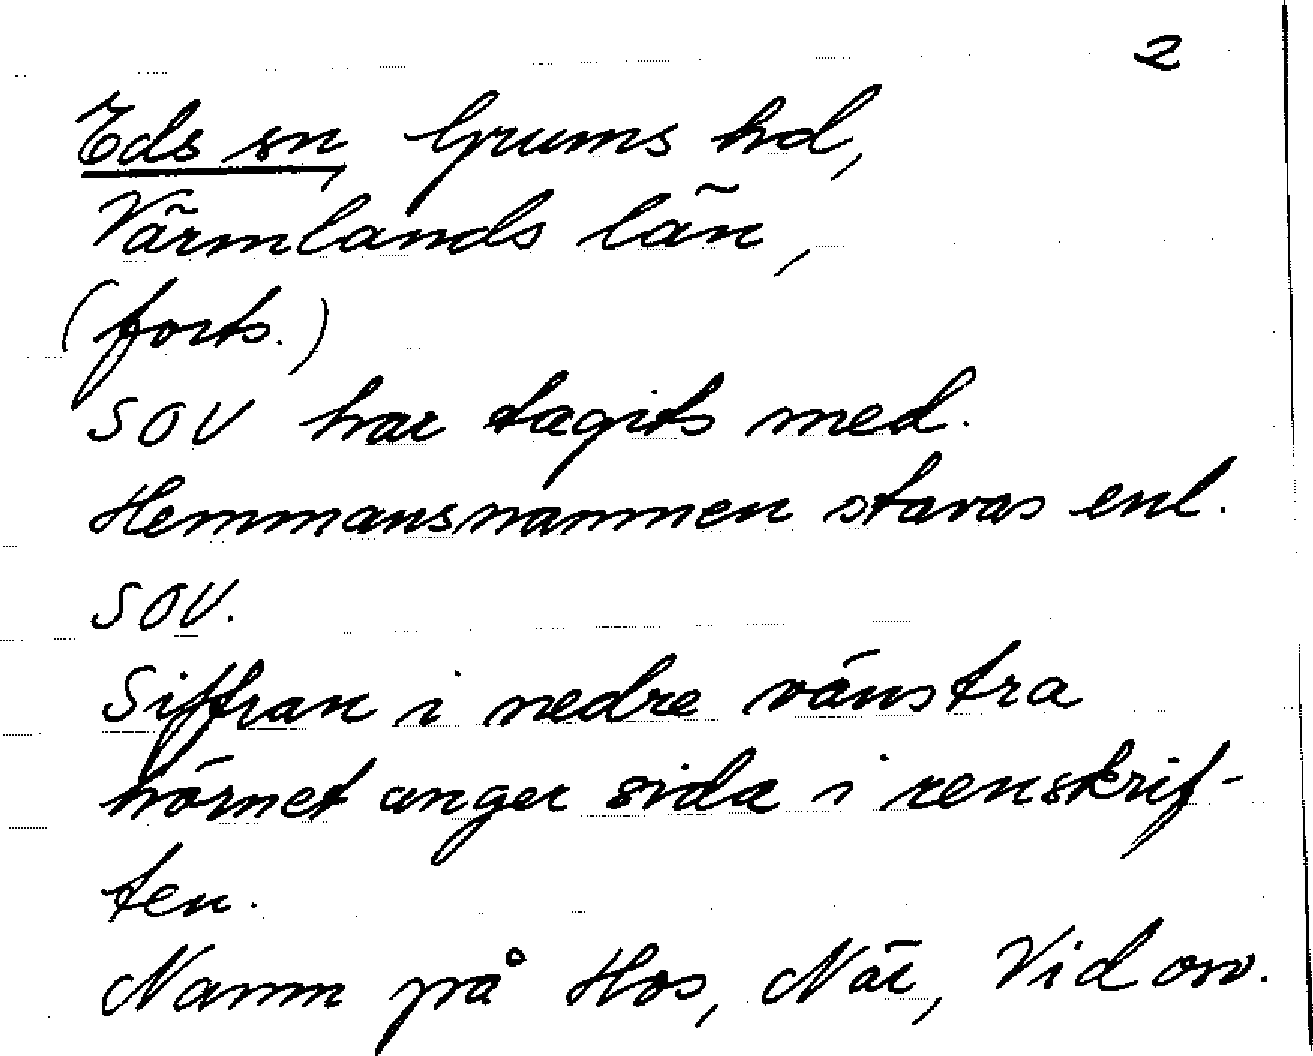 2
Eds sn, Grums hd,
Värmlands län,
(forts.)
SOV har tagits med.
Hemmansnamnen stavas enl.
SOV.
Siffran i nedre vänstra
hörnet anger sida i renskrif-
ten.
Namn på Hos, När, Vid osv.